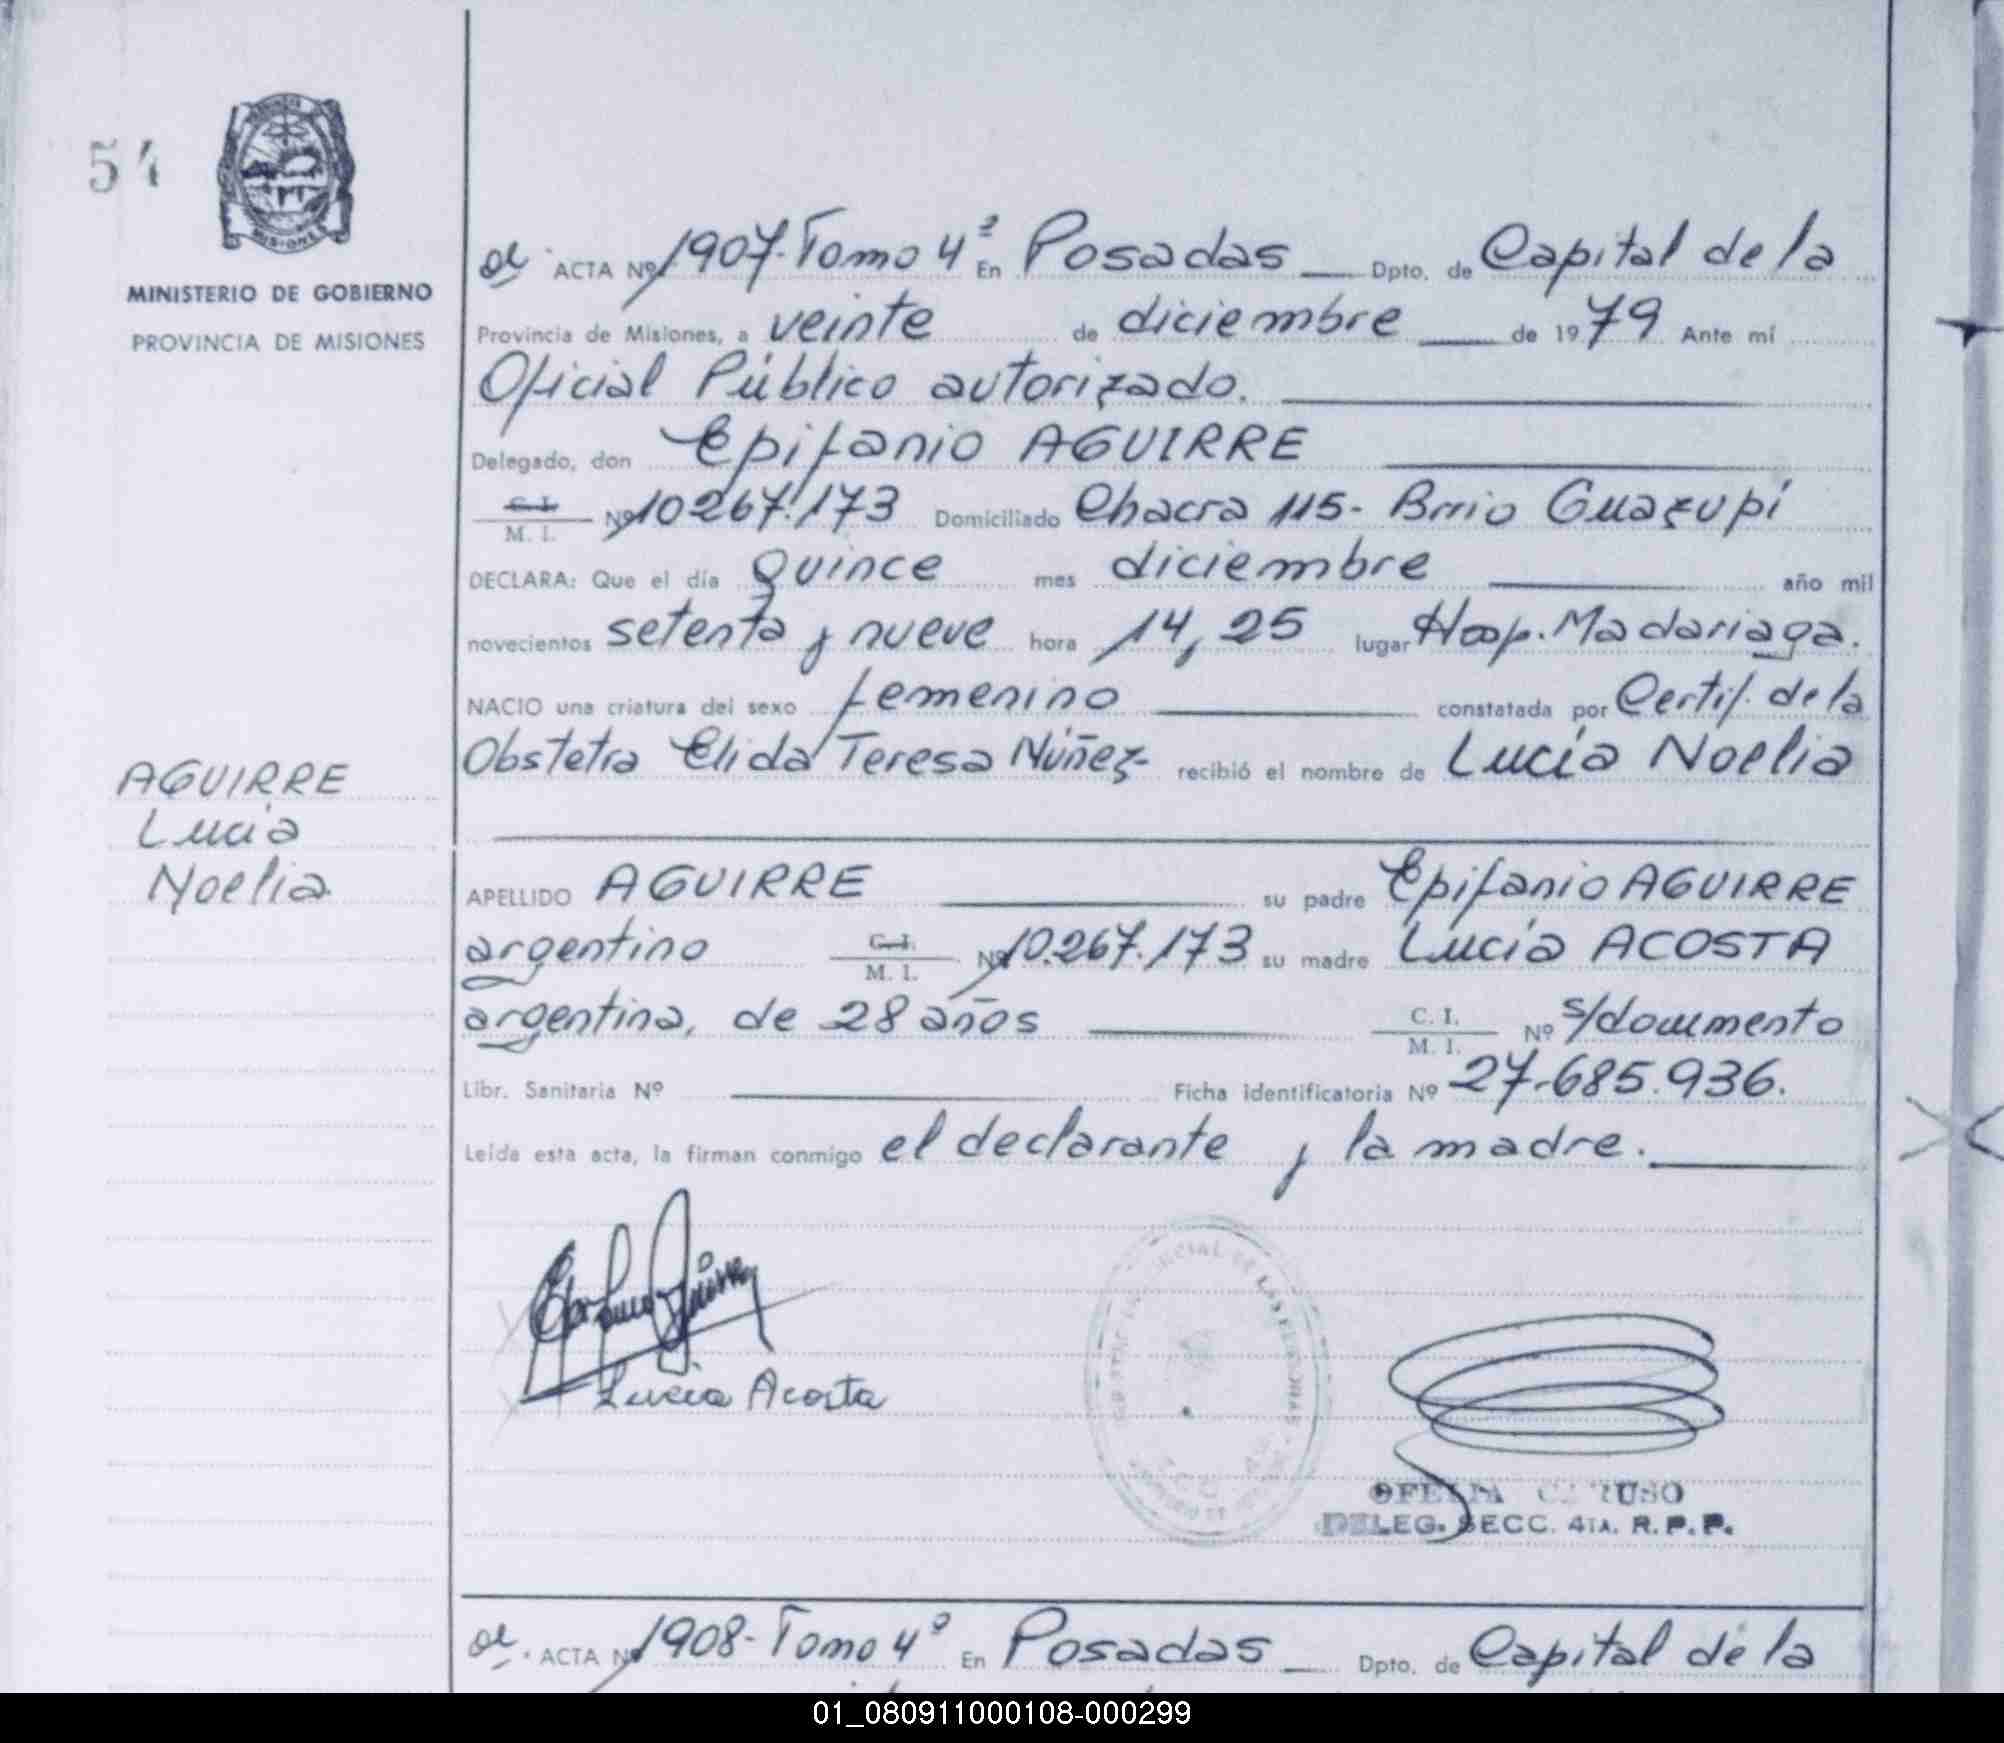 54
MINISTERIO DE GOBIERNO
PROVINCIA DE MISIONES
ACTA Nº 1907-Tomo 4º En Posadas Dpto. de Capital de la
Provincia de Misiones, a veinte de diciembre de 1979 Ante mí
Oficial Público autorizado.
Delegado, don Epifanio AGUIRRE
C. I.
M. I. Nº 10267.173 Domiciliado Chacra 115- Brrio Guazupí
DECLARA: Que el día quince mes diciembre año mil
novecientos setenta y nueve hora 14,25 lugar Hosp. Madariaga.
NACIO una criatura del sexo femenino constatada por Certif. de la
Obstetra Elida Teresa Núñez- recibió el nombre de Lucía Noelia
AGUIRRE
Lucía
Noelia
APELLIDO AGUIRRE su padre Epifanio AGUIRRE
argentino C. I.
M. I. Nº 10.267.173 su madre Lucía ACOSTA
argentina, de 28 años C. I.
M. I. Nº s/documento
Libr. Sanitaria Nº Ficha identificatoria Nº 27.685.936.
Leída esta acta, la firman conmigo el declarante y la madre.
Lucia Acosta
OFELIA CARUSO
DELEG. SECC. 4TA. R. P. P.
ACTA Nº 1908-Tomo 4º En Posadas Dpto. de Capital de la
01_080911000108-000299